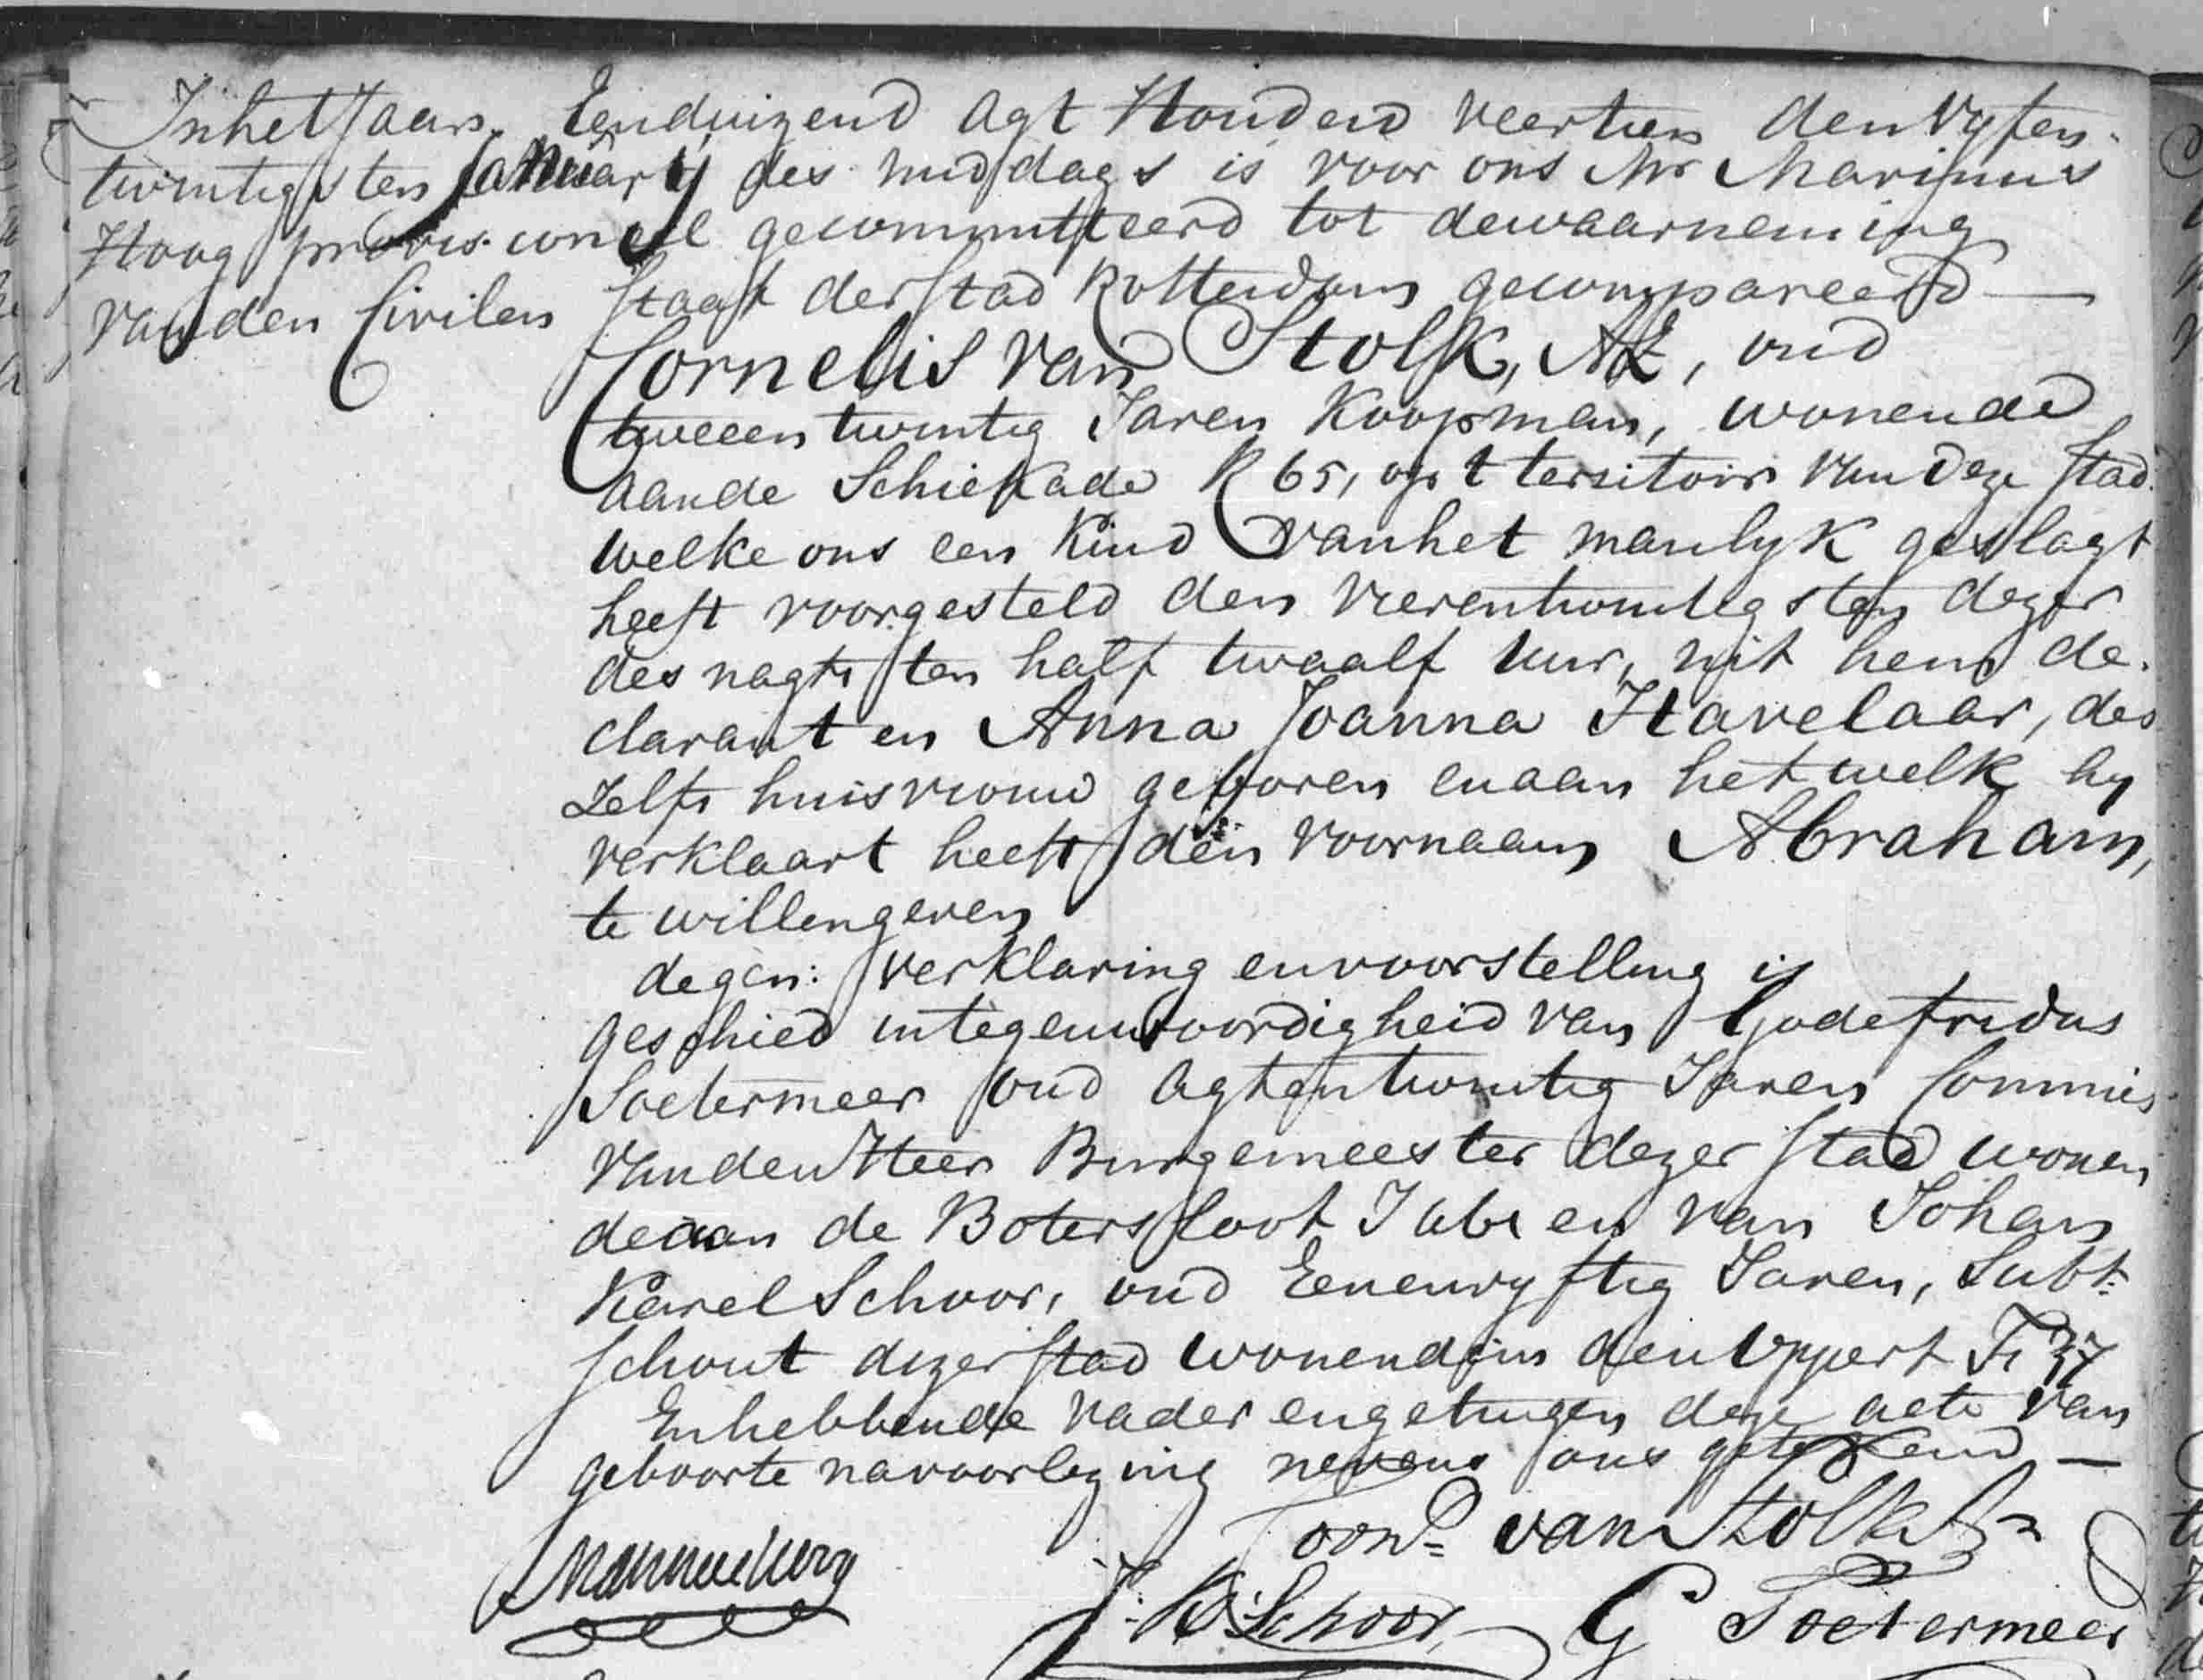 In het Jaar Eenduizend Agt Honderd veertien den Vyfen-
twintigsten January des middags is voor ons Mr Marinus
Hoog provisioneel gecommitteerd tot de waarneming
van den Civilen Staat der Stad Rotterdam gecompareerd —
Cornelis van Stolk, AZ, oud
tweeentwintig Jaren Koopman, wonende
aan de Schiekade R 65, op 't territoir van deze Stad
welke ons een Kind van het manlyk geslagt
heeft voorgesteld den vierentwintigsten dezer
des nagts ten half twaalf uur, uit hem de-
clarant en Anna Joanna Havelaar, des
zelfs huisvrouw geboren en aan het welk hy
verklaart heeft den voornaam Abraham,
te willen geven
dezen: verklaring en voorstelling is
geschied in tegenwoordigheid van Godefridus
Soetermeer oud agtentwintig Jaren Commis
van den Heer Burgemeester dezer Stad wonen
de aan de Botersloot en van Johan
Karel Schoor, oud Eenenvyftig Jaren, Subt:
Schout dezer Stad wonende in den Oppert
En hebbende vader en getuigen deze acte van
geboorte na voorlezing nevens ons getekend —
Corn= van Stolk Az
Marinus Hoog
J: K: Schoor G Soetermeer